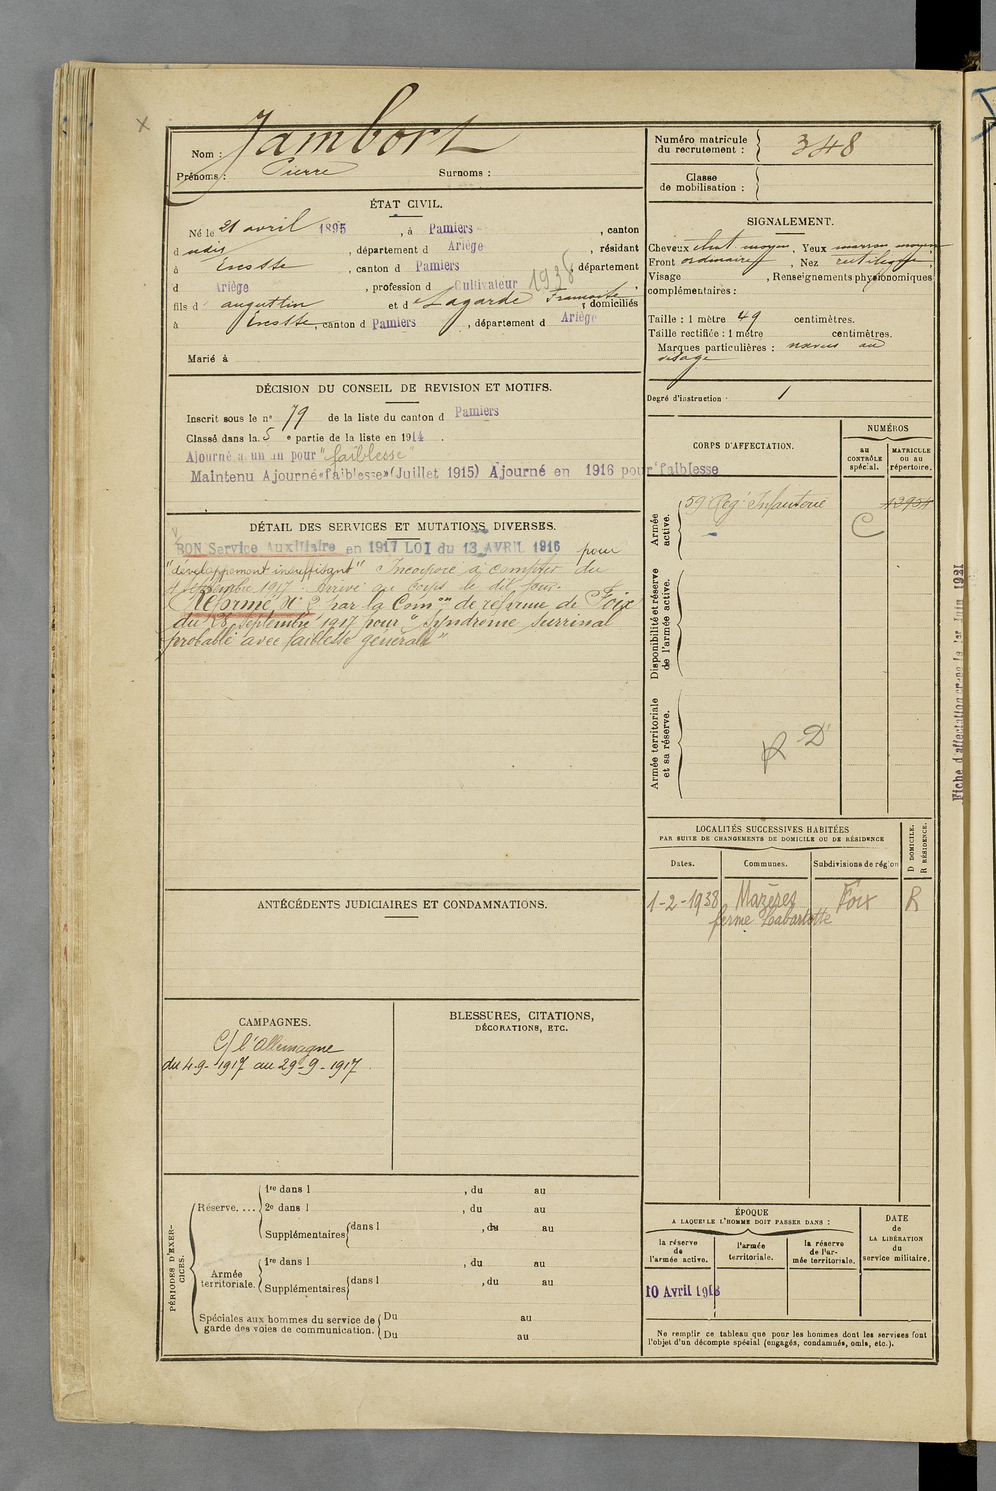 Nom : Jambort
Prénoms : Pierre Surnoms :
Numéro matricule du recrutement : 348
Classe de mobilisation :
ÉTAT CIVIL.
Né le 21 avril 1895, à Pamiers, canton
d udis, département d Ariège, résidant
à Escosse, canton d Pamiers, département
d Ariège, profession d Cultivateur 1938
fils d' augustin et d e Lagarde, domiciliés
à Escosse, canton d Pamiers, département d Ariège
Marié à
SIGNALEMENT.
Cheveux chat. moyen, Yeux marron moyen
Front ordinaire, Nez rectiligne,
Visage , Renseignements physionomiques
complémentaires :
Taille : 1 mètre 49 centimètres.
Taille rectifiée : 1 mètre centimètres.
Marques particulières : naevus au
visage
Degré d'instruction : 1
DÉCISION DU CONSEIL DE REVISION ET MOTIFS.
Inscrit sous le n° 79 de la liste du canton d Pamiers
Classé dans la 5 e partie de la liste en 1914.
Ajourné à un an pour "faiblesse"
Maintenu Ajourné «faiblesse» (Juillet 1915) Ajourné en 1916 pour faiblesse
DÉTAIL DES SERVICES ET MUTATIONS DIVERSES.
BON Service Auxiliaire en 1917 LOI du 13 AVRIL 1916 pour
"développement insuffisant" Incorporé à compter du
4 septembre 1917. Arrivé au Corps le dit jour.
Réformé N° 2 par la Com^on de réforme de Foix
du 28 septembre 1917 pour "Syndrome surrénal
probable avec faiblesse générale"
CORPS D'AFFECTATION.
NUMÉROS
au CONTRÔLE spécial.
MATRICULE ou au répertoire.
Armée active.
59 Rég^t Infanterie
C
Disponibilité et réserve de l'armée active.
Armée territoriale et sa réserve.
R D
Fiche d'affectation créée le 1er Juin 1921
LOCALITÉS SUCCESSIVES HABITÉES
PAR SUITE DE CHANGEMENTS DE DOMICILE OU DE RÉSIDENCE
Dates. Communes. Subdivisions de région
D DOMICILE. R RÉSIDENCE.
1-2-1938 Mazères Foix R
ferme Labarlotte
ANTÉCÉDENTS JUDICIAIRES ET CONDAMNATIONS.
CAMPAGNES.
C/ l'Allemagne
du 4-9-1917 au 29-9-1917
BLESSURES, CITATIONS,
DÉCORATIONS, ETC.
PÉRIODES D'EXERCICES.
Réserve. ...
1re dans l , du au
2e dans l , du au
Supplémentaires dans l , du au
Armée territoriale.
1re dans l , du au
Supplémentaires dans l , du au
Spéciales aux hommes du service de garde des voies de communication.
Du au
Du au
ÉPOQUE
A LAQUELLE L'HOMME DOIT PASSER DANS :
la réserve de l'armée active.
l'armée territoriale.
la réserve de l'armée territoriale.
DATE de LA LIBÉRATION du service militaire.
10 Avril 1918
Ne remplir ce tableau que pour les hommes dont les services font
l'objet d'un décompte spécial (engagés, condamnés, omis, etc.).